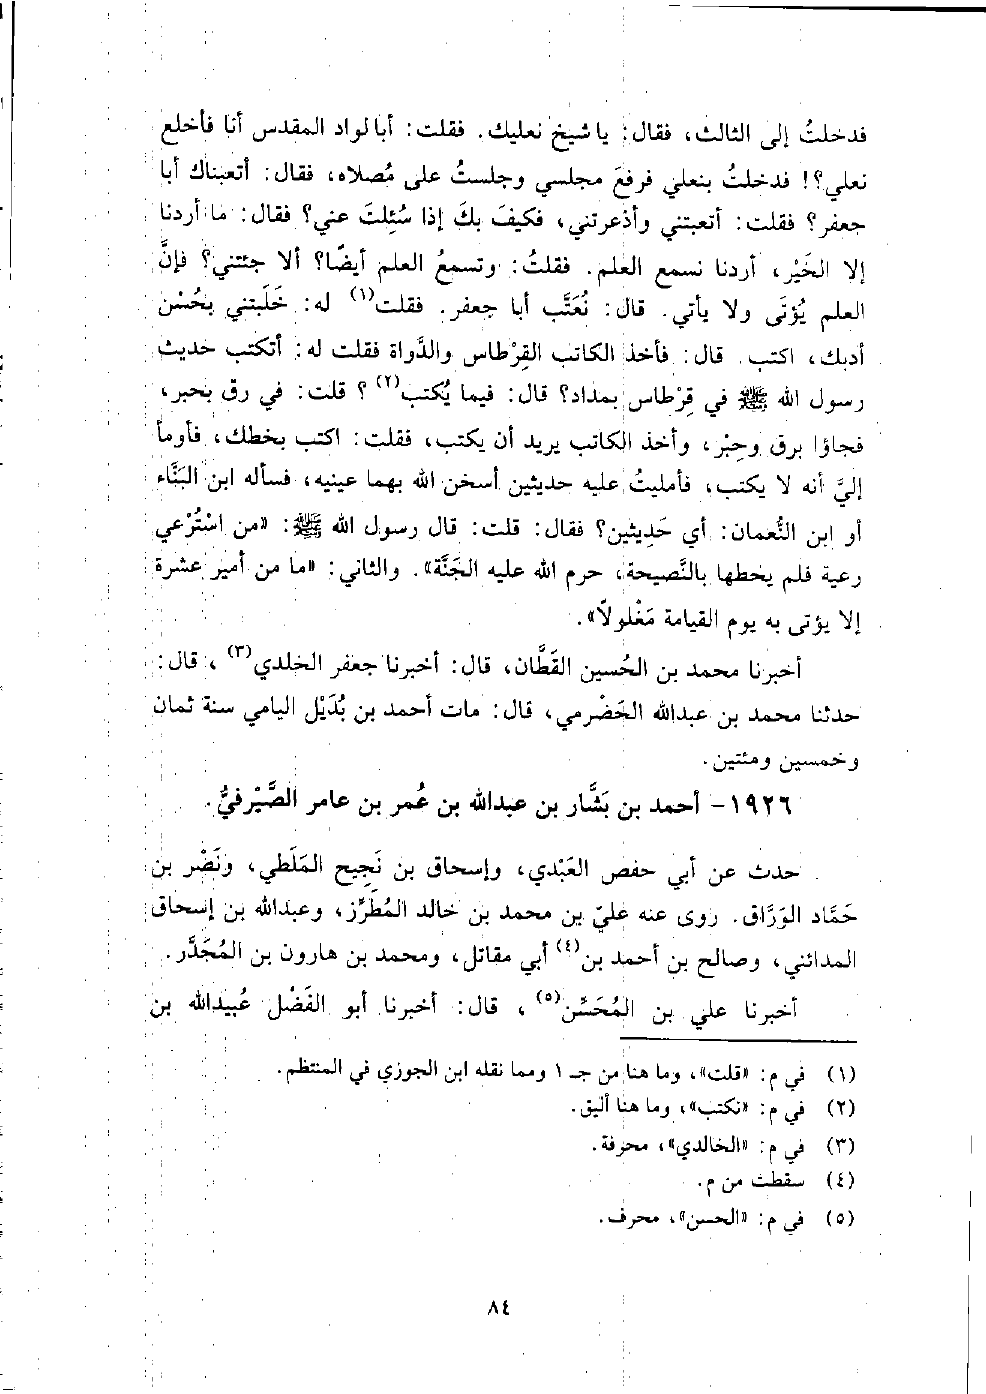 فدخلتُ إلى الثالث، فقال: يا شيخ نعليك. فقلت: أبا لواد المقدس أنا فأخلع
نعلي؟! فدخلتُ بنعلي فرفعَ مجلسي وجلستُ على مُصلاه، فقال: أتعبناك أبا
جعفر؟ فقلت: أتعبتني وأذعرتني، فكيفَ بكَ إذا سُئِلتَ عني؟ فقال: ما أردنا
إلا الخَيْر، أردنا نسمع العلم. فقلتُ: وتسمعُ العلم أيضًا؟ ألا جئتني؟ فإنَّ
العلم يُؤتَى ولا يأتي. قال: نُعَتَّب أبا جعفر. فقلت(١) له: خَلَبتني بحُسْن
أدبك، اكتب. قال: فأخذ الكاتب القِرْطاس والدَّواة فقلت له: أتكتب حديث
رسول الله ﷺ في قِرْطاس بمداد؟ قال: فيما يُكتب(٢)؟ قلت: في رق بحبر،
فجاؤا برق وحِبْر، وأخذ الكاتب يريد أن يكتب، فقلت: اكتب بخطك، فأومأ
إليَّ أنه لا يكتب، فأمليتُ عليه حديثين أسخن الله بهما عينيه، فسأله ابن البَنَّاء
أو ابن النُّعمان: أي حَدِيثين؟ فقال: قلت: قال رسول الله ﷺ: «من اسْتُرْعي
رعية فلم يحطها بالنَّصيحة، حرم الله عليه الجَنَّة». والثاني: «ما من أمير عشرة
إلا يؤتى به يوم القيامة مَغْلولًا».
أخبرنا محمد بن الحُسين القَطَّان، قال: أخبرنا جعفر الخلدي(٣)، قال:
حدثنا محمد بن عبدالله الحَضْرمي، قال: مات أحمد بن بُدَيْل اليامي سنة ثمان
وخمسين ومئتين.
١٩٢٦- أحمد بن بَشَّار بن عبدالله بن عُمر بن عامر الصَّيْرفيُّ.
حدث عن أبي حفص العَبْدي، وإسحاق بن نَجِيح المَلَطي، ونَصْر بن
حَمَّاد الوَرَّاق. روى عنه عليّ بن محمد بن خالد المُطَرِّز، وعبدالله بن إسحاق
المدائني، وصالح بن أحمد بن(٤) أبي مقاتل، ومحمد بن هارون بن المُجَدَّر.
أخبرنا علي بن المُحَسِّن(٥)، قال: أخبرنا أبو الفَضْل عُبيدالله بن
(١) في م: «قلت»، وما هنا من جـ ١ ومما نقله ابن الجوزي في المنتظم.
(٢) في م: «نكتب»، وما هنا أليق.
(٣) في م: «الخالدي»، محرفة.
(٤) سقطت من م.
(٥) في م: «الحسن»، محرف.
٨٤